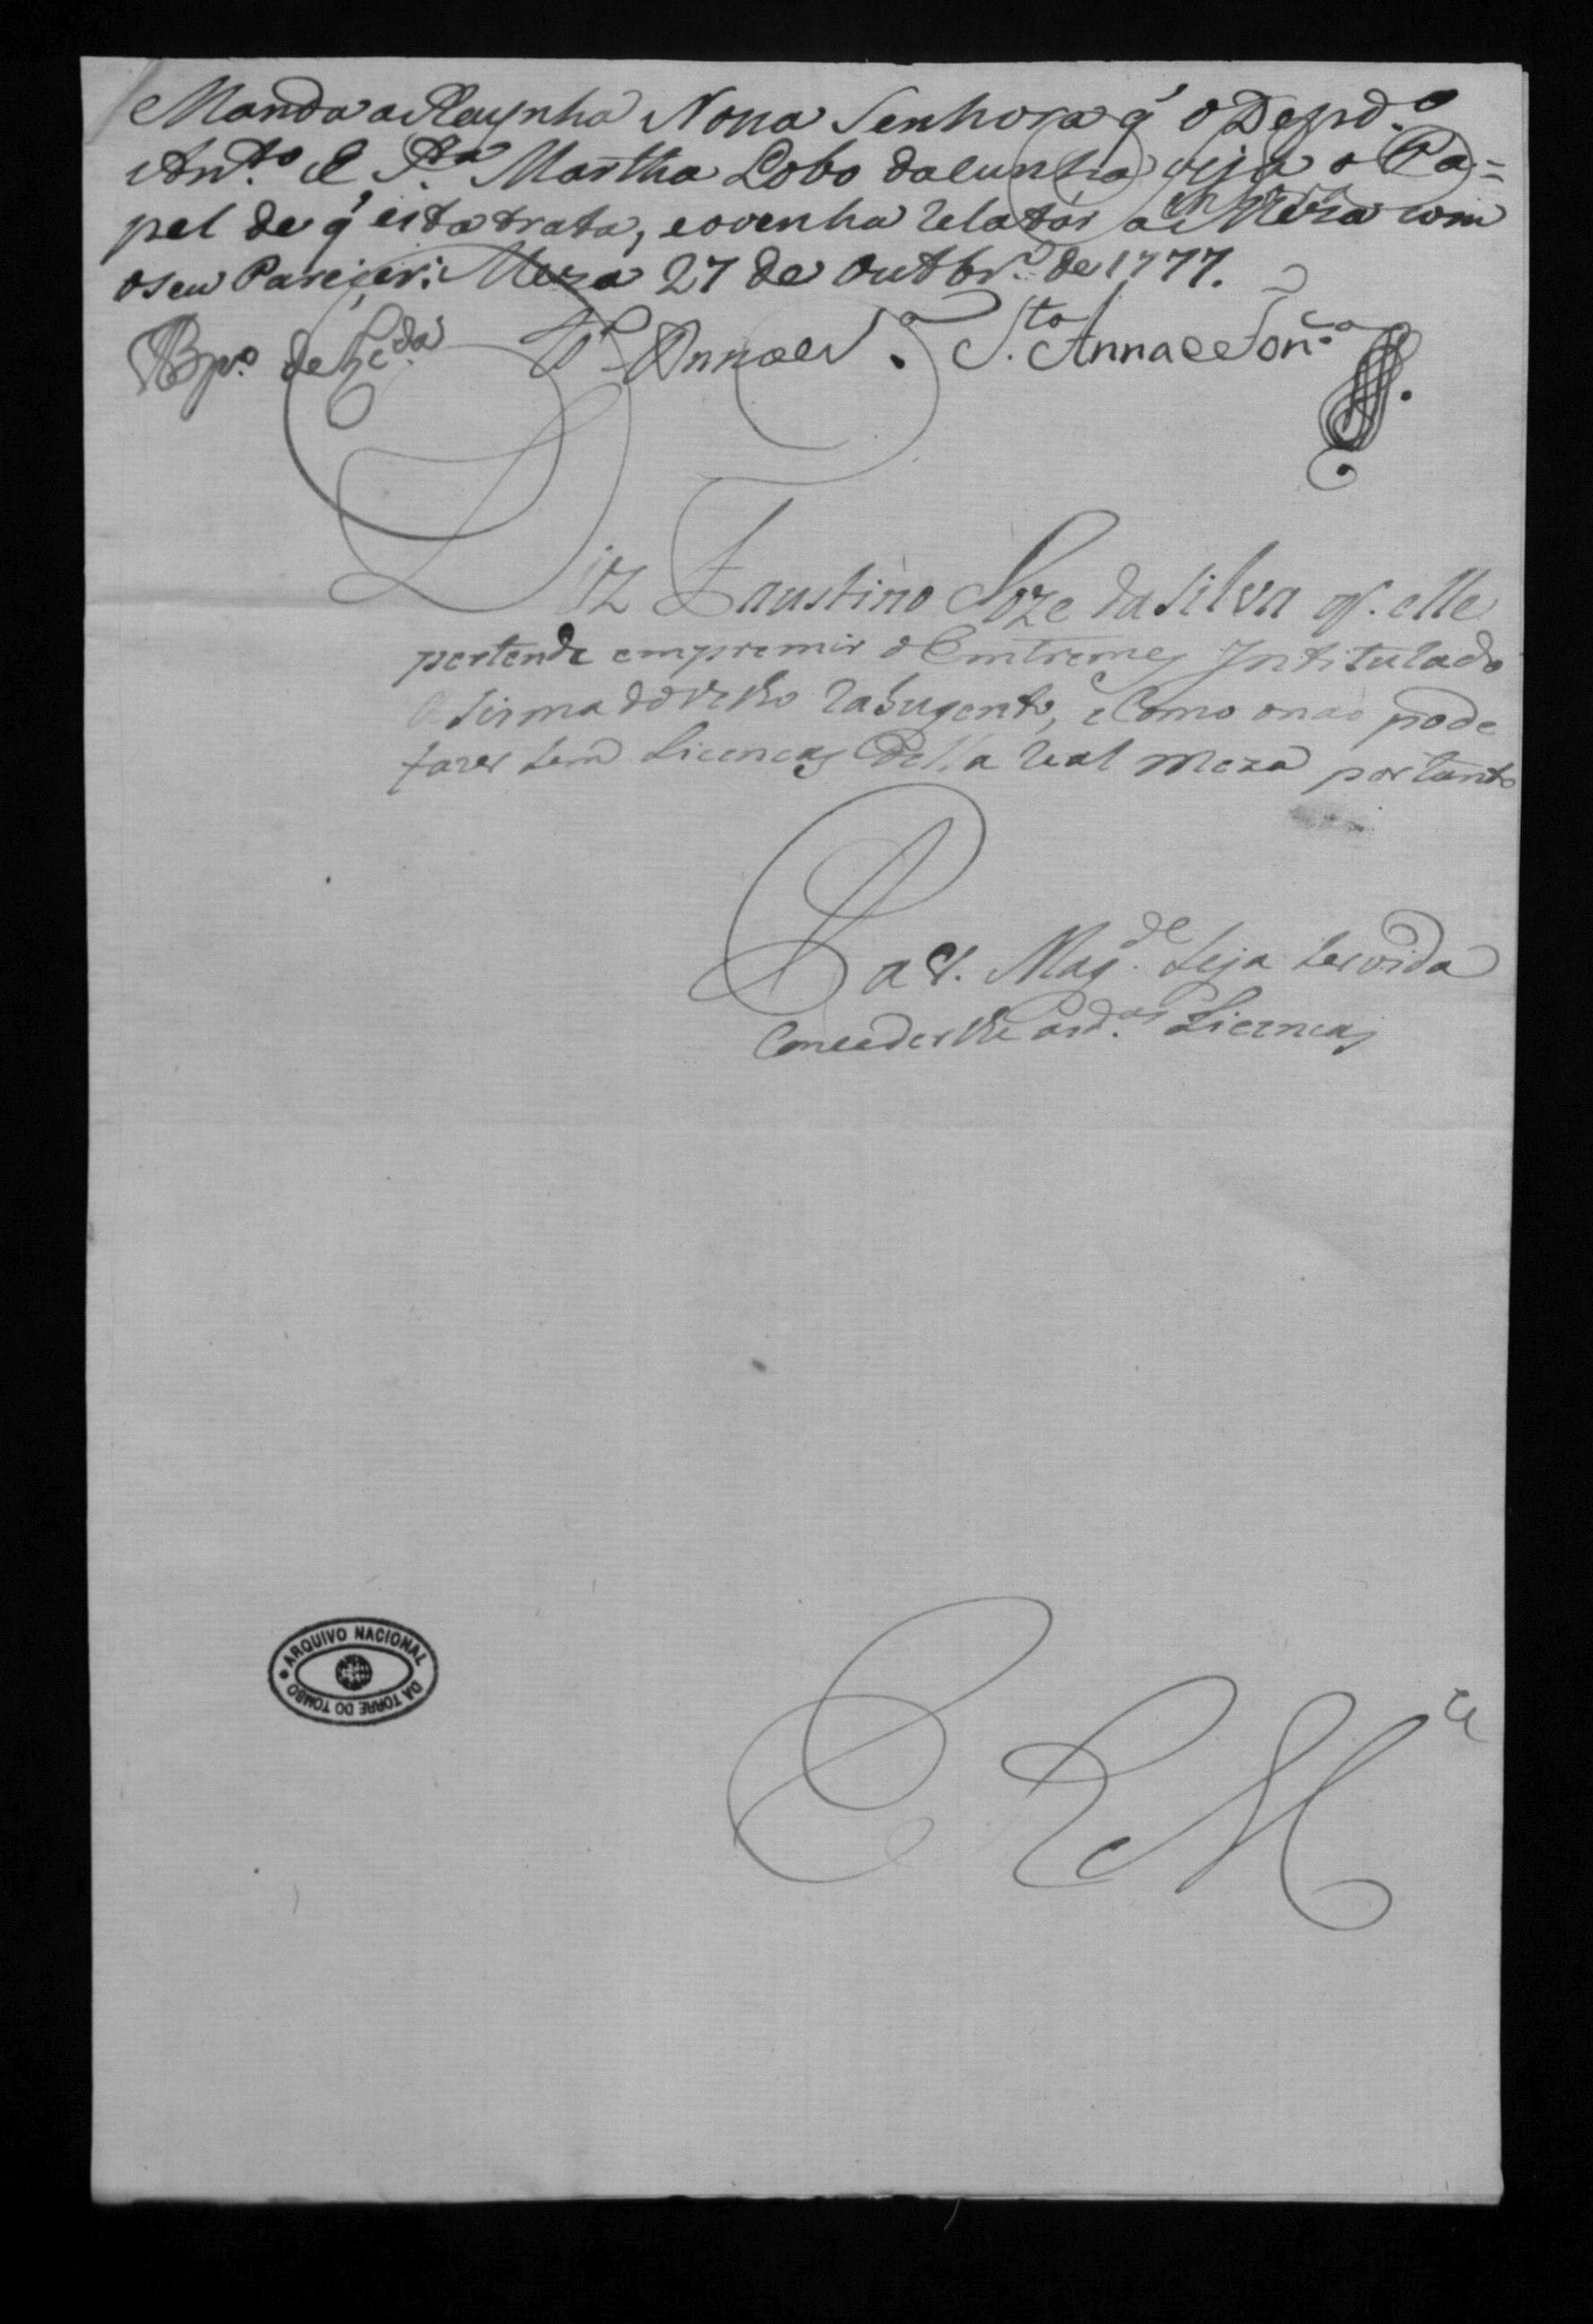 Manda a Raynha Nossa Senhora q̃ o Dezpd.º
Ant.º de S.ta Martha Lobo da Cunha veja o Pa=
pel de q̃ esta trata, e o venha relatar a Meza com
o seu Parecer. Meza 27 de Outbr.º de 1777.
Bp.º S.ta Anna e Fon.ca
Diz Faustino Joze da Silva q̃. elle
pertende empremir o Emtremes Intitulado
A sisma do velho Rabugento, e Como o nao pode
fazer sem Licencas desta Real Meza portanto
P a V. Mag.de Seja servida
Concederlhe as d.as Licencas
E R M.ce
ARQUIVO NACIONAL
DA TORRE DO TOMBO